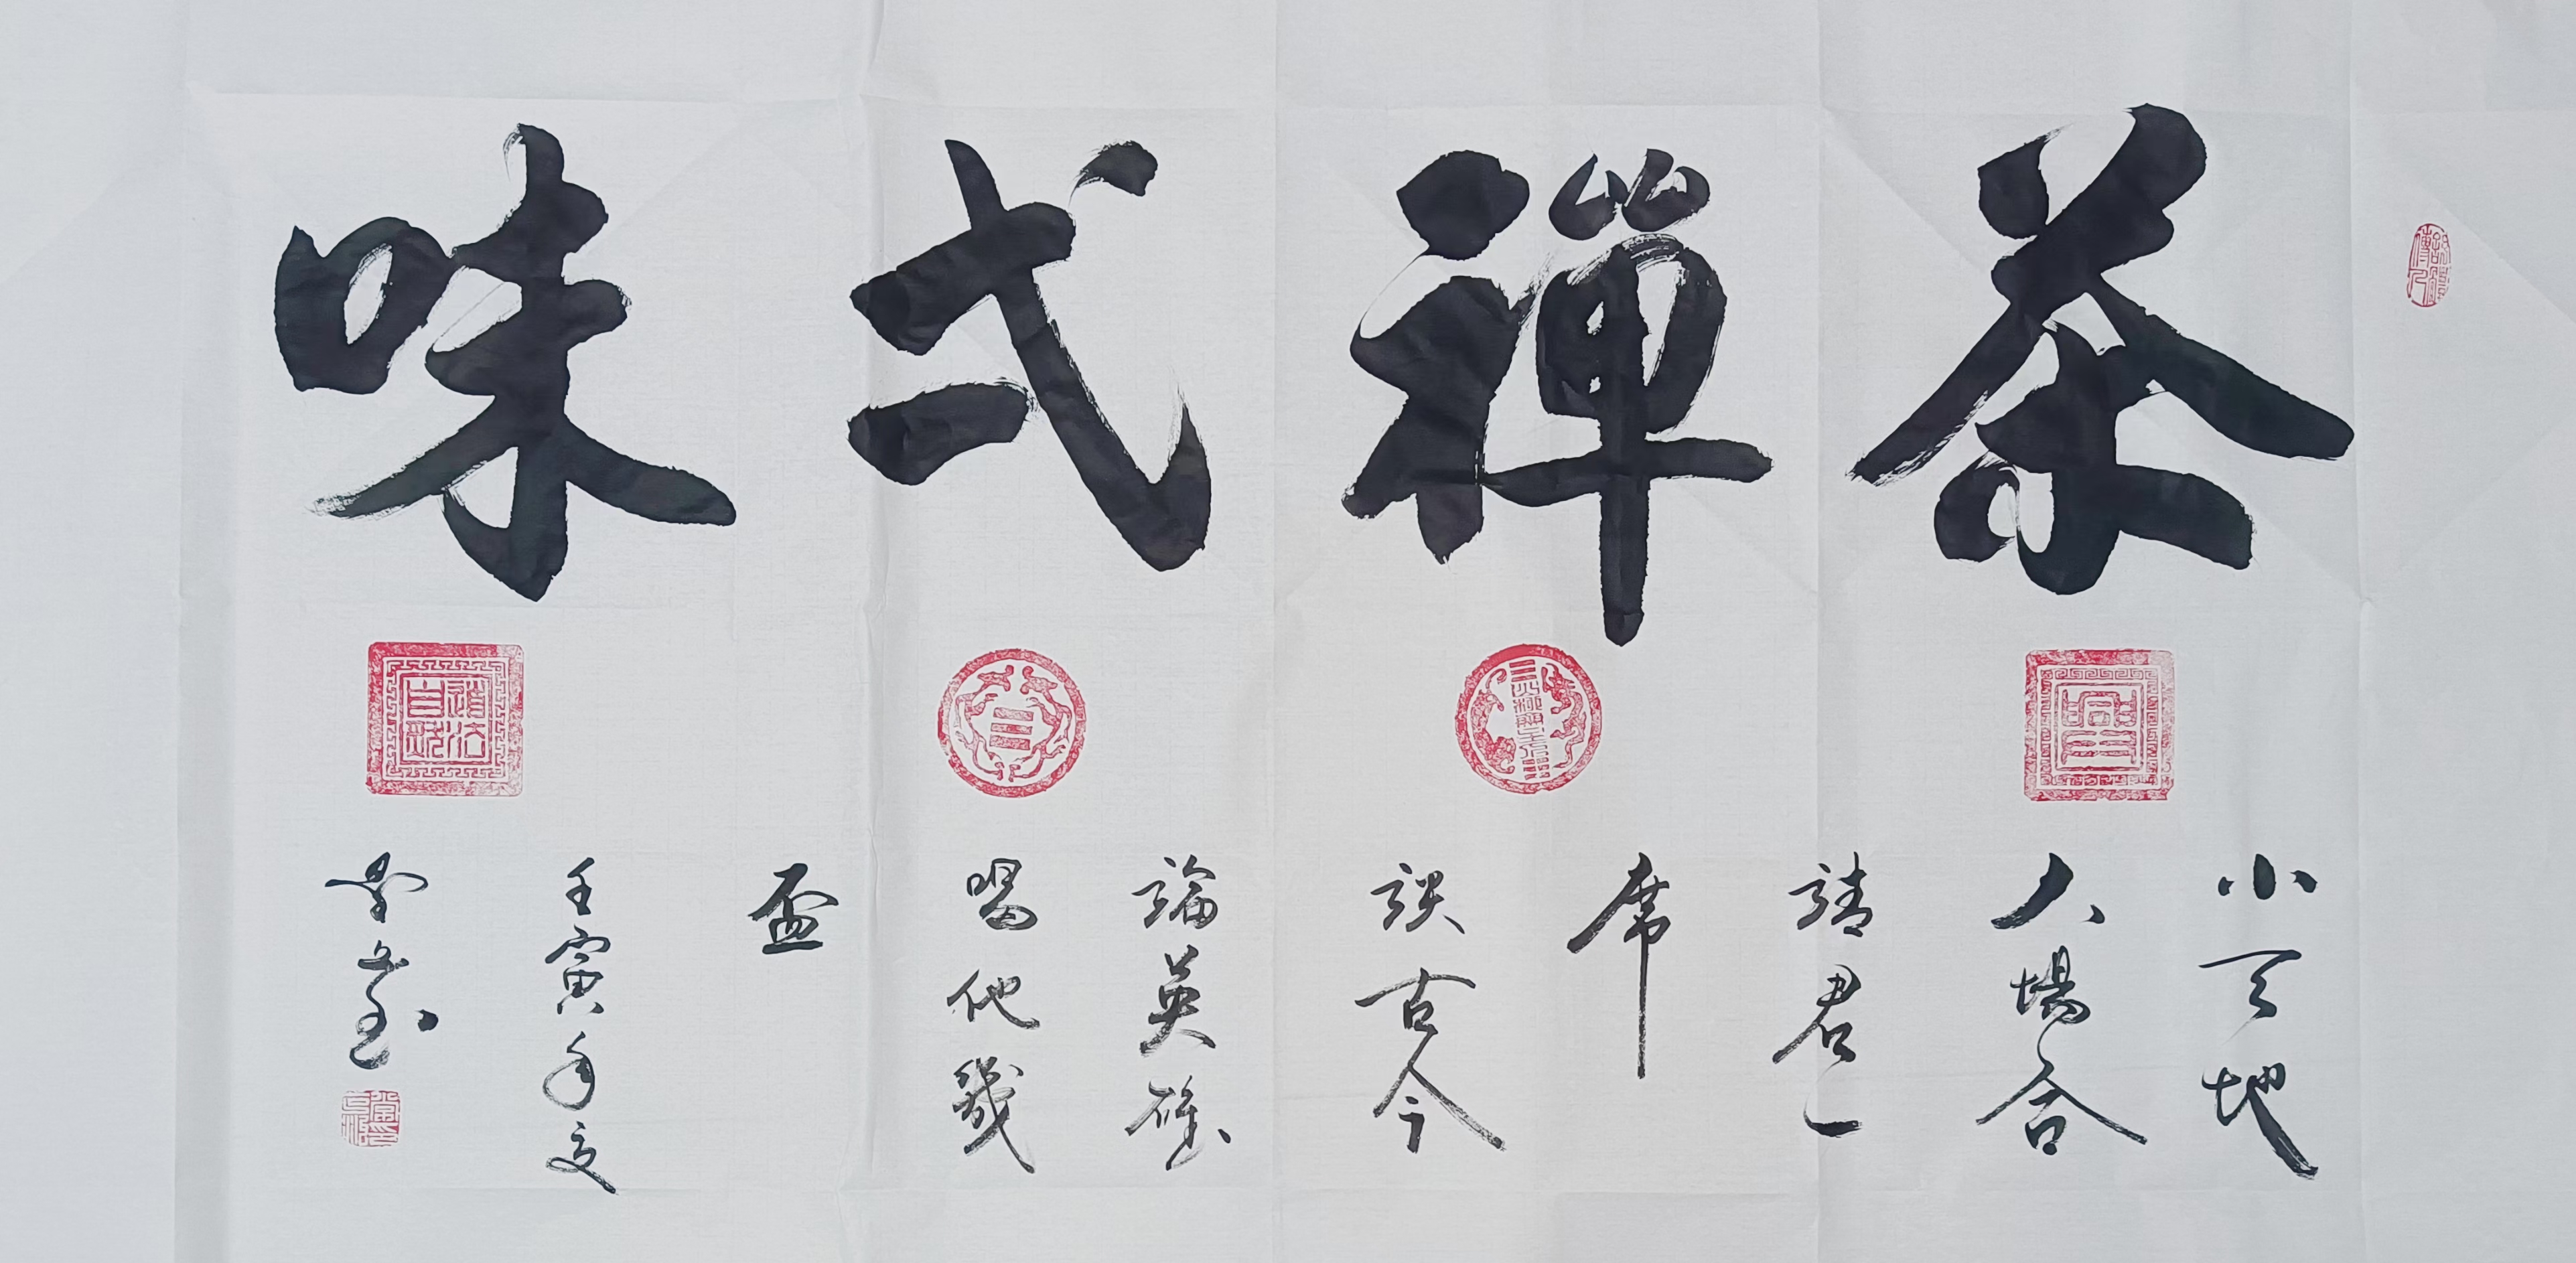 茶禪弌味
小天地
大場合
請君一
席
談古今
論英雄
喝他幾
盃
壬寅年夏
道法自然